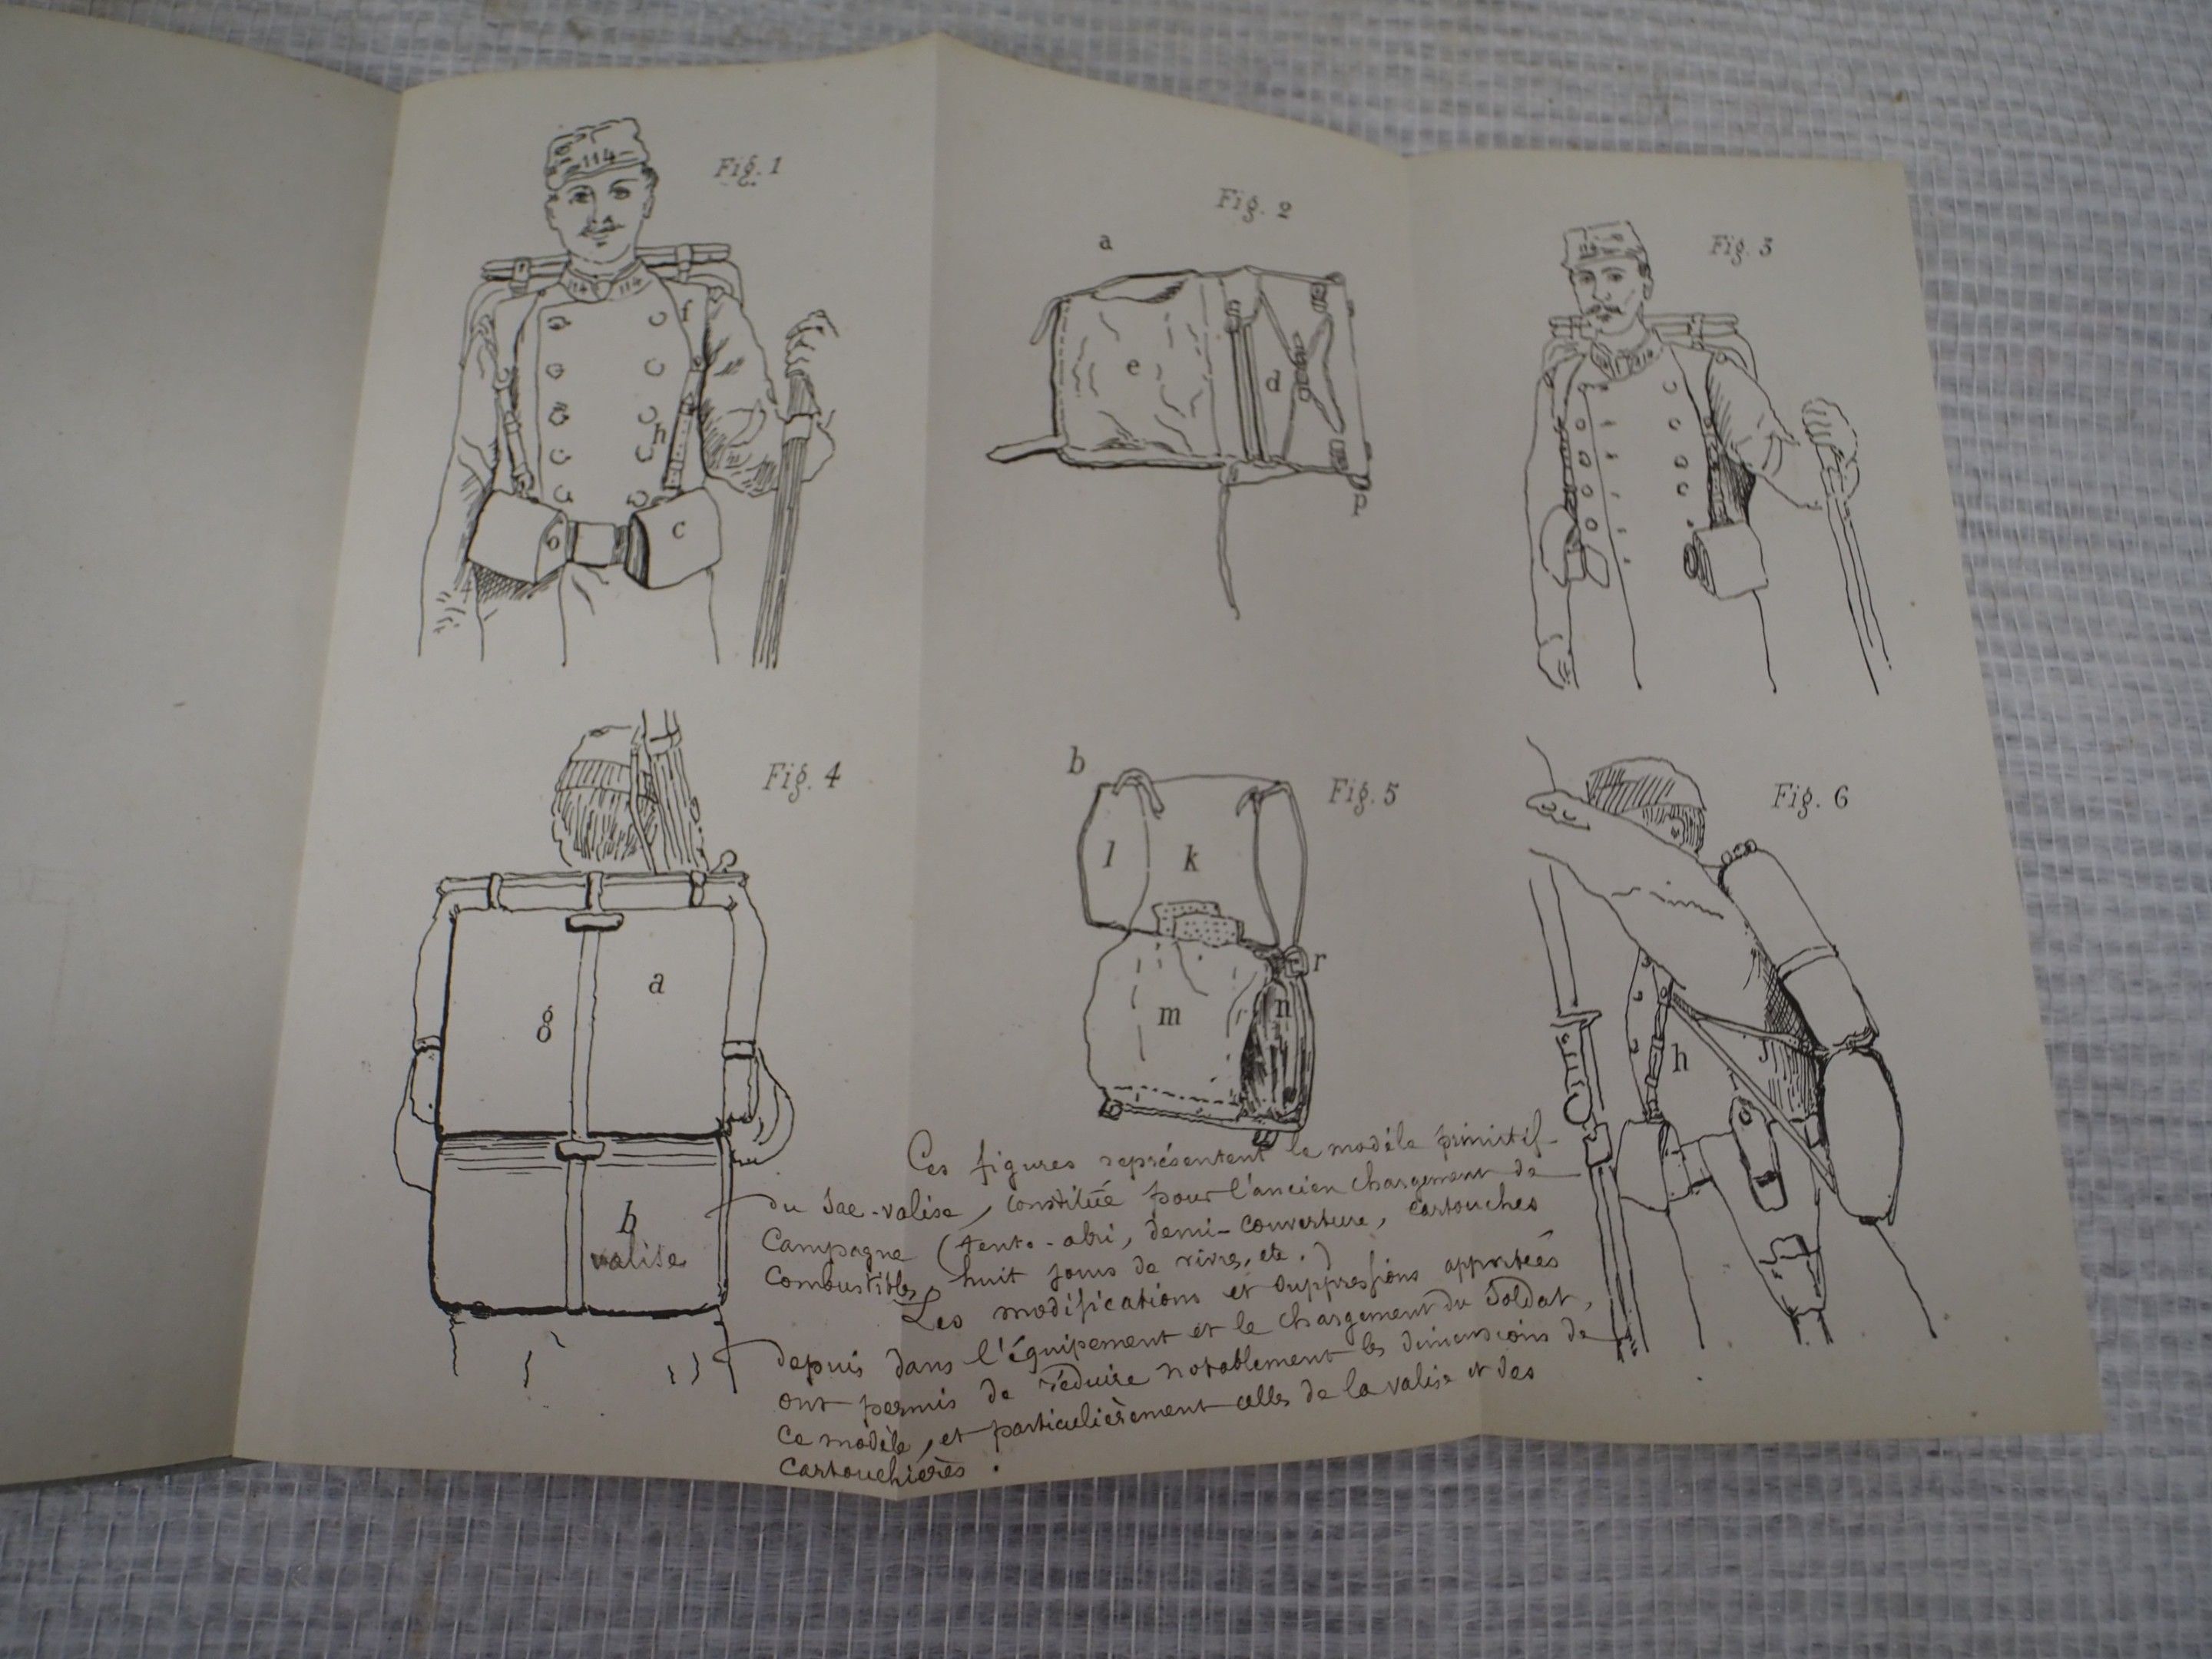 114
Fig. 1
114 114
f
h
c
Fig. 2
a
e
d
p
Fig. 3
114
Fig. 4
a
g
b
valise
b
Fig. 5
l
k
r
m
n
Fig. 6
h
Ces figures représentent le modèle primitif
du Sac-valise, constitué pour l'ancien chargement de
Campagne (tente-abri, demi-couverture, cartouches
Combustibles, huit jours de vivres, etc.)
Les modifications et suppressions apportées
depuis dans l'équipement et le chargement du Soldat,
ont permis de réduire notablement les dimensions de
ce modèle, et particulièrement celles de la valise et des
Cartouchières.